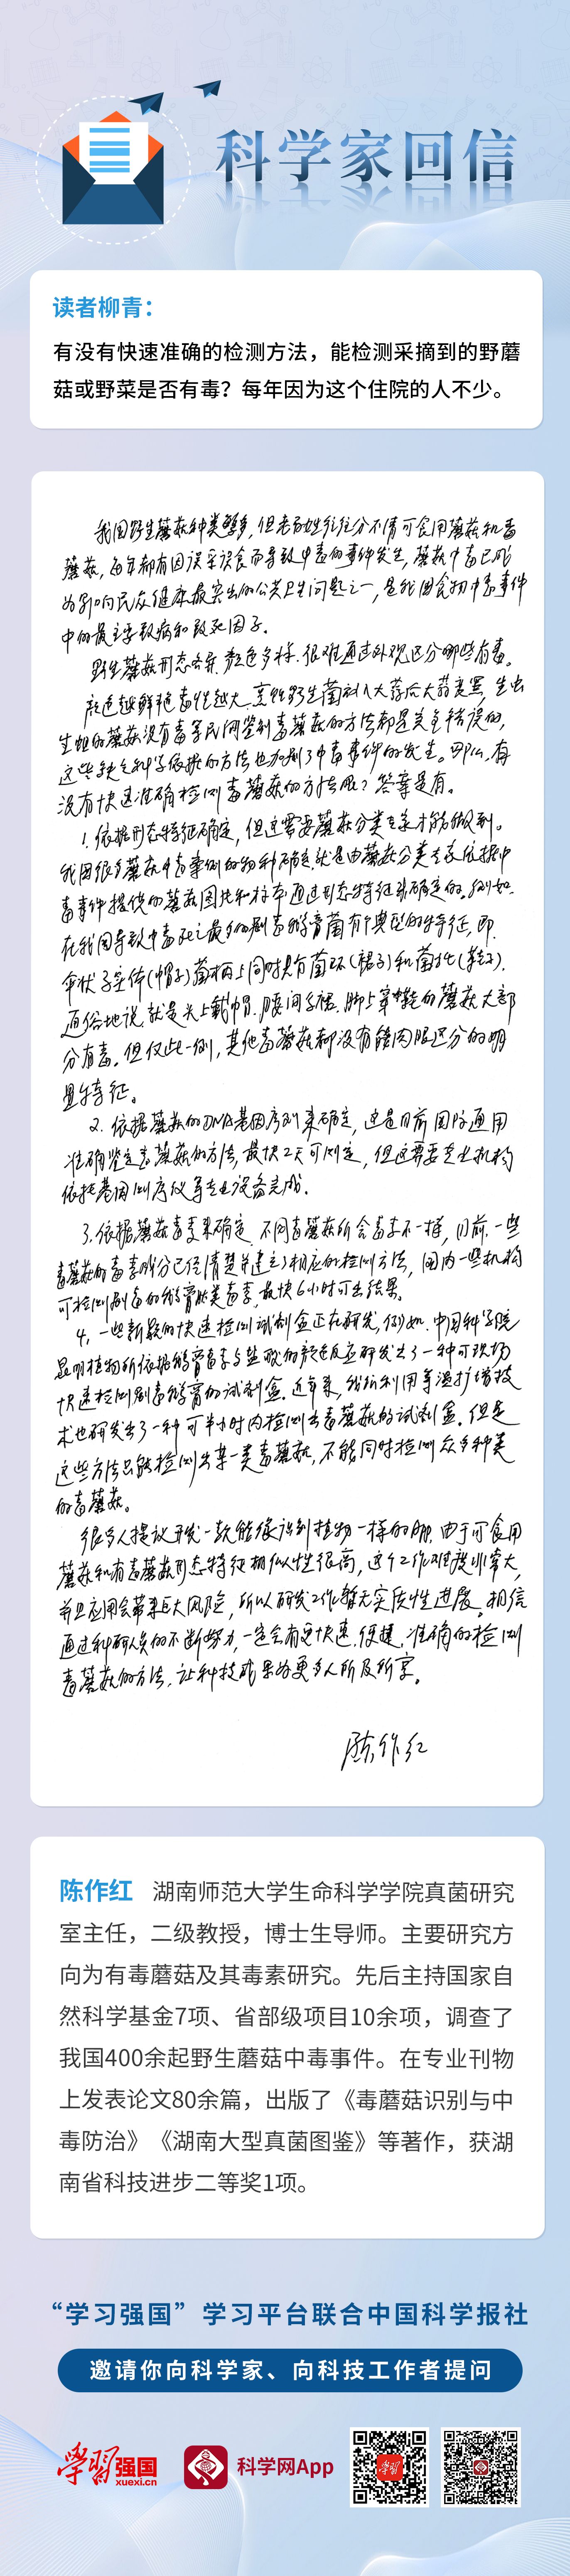 科学家回信
读者柳青：
有没有快速准确的检测方法，能检测采摘到的野蘑
菇或野菜是否有毒？每年因为这个住院的人不少。
我国野生蘑菇种类繁多，但老百姓往往分不清可食用蘑菇和毒
蘑菇，每年都有因误采误食而导致中毒的事件发生，蘑菇中毒已成
为影响民众健康最突出的公共卫生问题之一，是我国食物中毒事件
中的最主要致病和致死因子。
野生蘑菇形态各异、颜色多样，很难通过外观区分哪些有毒。
颜色越鲜艳毒性越大、烹饪野生菌放入大蒜后大蒜变黑、生虫
生蛆的蘑菇没有毒等民间鉴别毒蘑菇的方法都是完全错误的，
这些缺乏科学依据的方法也加剧了中毒事件的发生。那么，有
没有快速准确检测毒蘑菇的方法呢？答案是有。
1. 依据形态特征确定，但这需要蘑菇分类专家才能做到。
我国很多蘑菇中毒案例的物种确定，就是由蘑菇分类专家依据中
毒事件提供的蘑菇图片和标本通过形态特征来确定的。例如，
在我国导致中毒死亡最多的剧毒鹅膏菌有个典型的特征，即
伞状子实体（帽子）菌柄上同时具有菌环（裙子）和菌托（鞋子）。
通俗地说，就是头上戴帽、腰间系裙、脚上穿鞋的蘑菇大部
分有毒。但仅此一例，其他毒蘑菇都没有能肉眼区分的明
显特征。
2. 依据蘑菇的DNA基因序列来确定，这是目前国际通用
准确鉴定毒蘑菇的方法，最快2天可测定，但这需要专业机构
依托基因测序仪等专业设备完成。
3. 依据蘑菇毒素来确定，不同毒蘑菇所含毒素不一样，目前，一些
毒蘑菇的毒素成分已经清楚并建立了相应的检测方法，国内一些机构
可检测剧毒的鹅膏肽类毒素，最快6小时可出结果。
4. 一些新颖的快速检测试剂盒正在研发，例如，中国科学院
昆明植物所依据鹅膏毒素与盐酸的颜色反应研发出了一种可现场
快速检测剧毒鹅膏的试剂盒。近年来，我们利用等温扩增技
术也研发出了一种可半小时内检测出毒蘑菇的试剂盒。但是
这些方法只能检测出某一类毒蘑菇，不能同时检测众多种类
的毒蘑菇。
很多人提议开发一款能像识别植物一样的APP，由于可食用
蘑菇和有毒蘑菇形态特征相似性很高，这个工作难度非常大，
并且应用会带来巨大风险，所以研发工作暂无实质性进展。相信
通过科研人员的不断努力，一定会有更快速、便捷、准确的检测
毒蘑菇的方法，让科技成果为更多人所及所享。
陈作红
陈作红 湖南师范大学生命科学学院真菌研究
室主任，二级教授，博士生导师。主要研究方
向为有毒蘑菇及其毒素研究。先后主持国家自
然科学基金7项、省部级项目10余项，调查了
我国400余起野生蘑菇中毒事件。在专业刊物
上发表论文80余篇，出版了《毒蘑菇识别与中
毒防治》《湖南大型真菌图鉴》等著作，获湖
南省科技进步二等奖1项。
“学习强国”学习平台联合中国科学报社
邀请你向科学家、向科技工作者提问
学习强国
xuexi.cn
科学网App